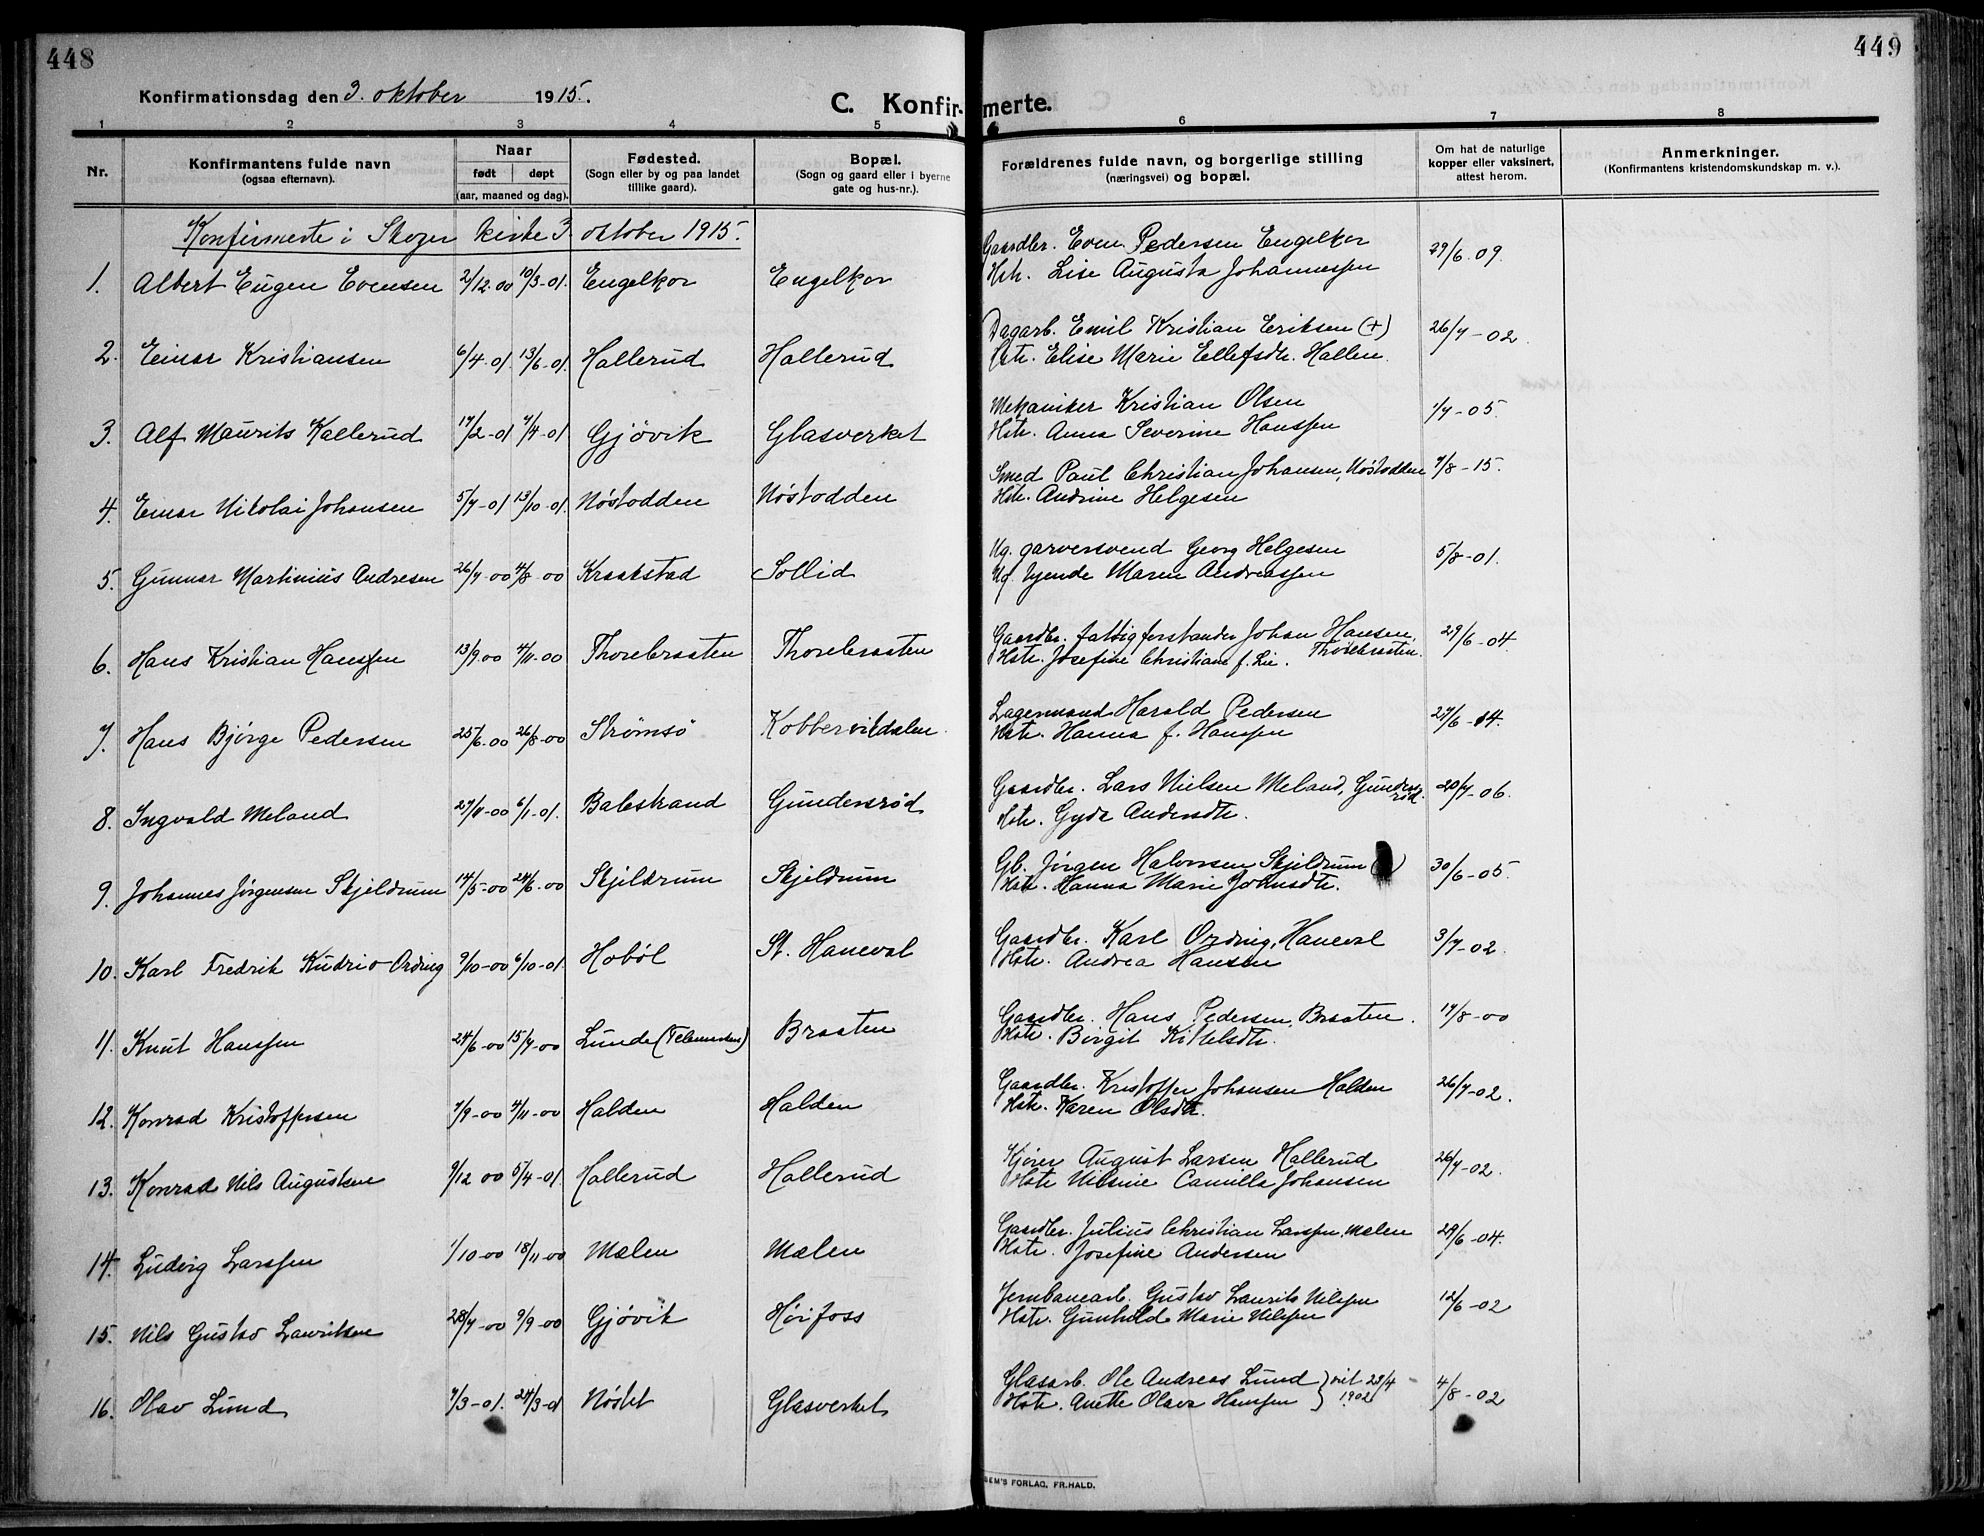 448
449
Konfirmationsdag den 3. oktober 1915.
C. Konfirmerte.
1 2 3 4 5 6 7 8
Nr.
Konfirmantens fulde navn
(ogsaa efternavn).
Naar
født døpt
(aar, maaned og dag).
Fødested.
(Sogn eller by og paa landet
tillike gaard).
Bopæl.
(Sogn og gaard eller i byerne
gate og hus-nr.).
Forældrenes fulde navn, og borgerlige stilling
(næringsvei) og bopæl.
Om hat de naturlige
kopper eller vaksinert,
attest herom.
Anmerkninger.
(Konfirmantens kristendomskundskap m. v.).
Konfirmerte i Skoger kirke 3 oktober 1915.
Gaardbr. Even Pedersen Engelkor
1. Albert Eugen Evensen 2/12 00 10/3-01. Engelkor Engelkor Hstr. Lise Augusta Johannessen 29/6-09.
Dagarb. Emil Kristian Eriksen (+)
2. Einar Kristiansen 6/4-01. 13/6-01. Hallerud Hallerud Hstr. Elise Marie Ellefsdtr. Hallen. 26/7-02.
Mekaniker Kristian Olsen
3. Alf Maurits Kallerud 17/2-01 7/4-01 Gjøvik Glasverket Hstr. Anna Severine Hanssen 1/7-05.
Smed Paul Christian Johansen, Nøstodden
4. Einar Nikolai Johansen 5/7-01 13/10-01. Nøstodden Nøstodden Hstr. Andrine Helgesen 7/8-15.
Ug. garversvend Georg Helgesen
5. Gunnar Martinius Andresen 26/7-00 4/8-00 Kraakstad Sollid Ug. tjende Maren Andreassen 5/8-01.
Gaardbr. fattigforstander Johan Hansen,
6. Hans Kristian Hanssen 13/9 00 4/11-00 Thorebraaten Thorebraaten Hstr. Josefine Christiane f. Lie. Thorebraaten. 29/6-04.
Lagermand Harald Pedersen
7. Hans Bjørge Pedersen 25/6-00 26/8-00 Strømsø Kobbervikdalen. Hstr. Hanna f. Hanssen 27/6-14.
Gaardbr. Lars Nielsen Meland, Gundersrød.
8. Ingvald Meland 27/11-00 6/1-01. Balestrand Gundersrød Hstr. Gyda Andersdtr. 20/7-06.
Gb. Jørgen Halvorsen Skjeldrum
9. Johannes Jørgensen Skjeldrum 14/5-00 24/6-00 Skjeldrum Skjeldrum Hstr. Hanna Marie Johnsdtr. 30/6-05.
Gaardbr. Karl Ording, Haneval
10. Karl Fredrik Kudrio Ording 9/10-00 6/10-01. Hobøl St. Haneval Hstr. Andrea Hansen 3/7-02.
Gaardbr. Hans Pedersen, Braaten.
11. Knut Hanssen 24/6-00 15/7-00 Lunde (Telemarken) Braaten Hstr. Birgit Kittelsdtr. 17/8-00
Gaardbr. Kristoffer Johansen Halden
12. Konrad Kristoffersen 7/9-00 4/11-00 Halden Halden Hstr. Karen Olsdtr. 26/7-02.
Kjører August Larsen Hallerud
13. Konrad Nils Augustsen 9/12 00 5/4-01. Hallerud Hallerud Hstr. Nilsine Camilla Johansen 26/7-02.
Gaardbr. Julius Christian Larssen, Mælen
14. Ludvig Larssen 1/10-00 18/11-00 Mælen Mælen Hstr. Josefine Andersen 29/6-04.
Jernbanearb. Gustav Laurits Nilssen
15. Nils Gustav Lauritsen 28/7-00 9/9-00 Gjøvik Høifoss Hstr. Gunhild Marie Nilssen 12/6-02
Glasarb. Ole Andreas Lund } vit 23/4
16. Olav Lund 7/3-01. 24/3-01 Nøstet Glasverket Hstr. Anette Olava Hanssen } 1902 4/8-02
SEM'S FORLAG, FR.HALD.